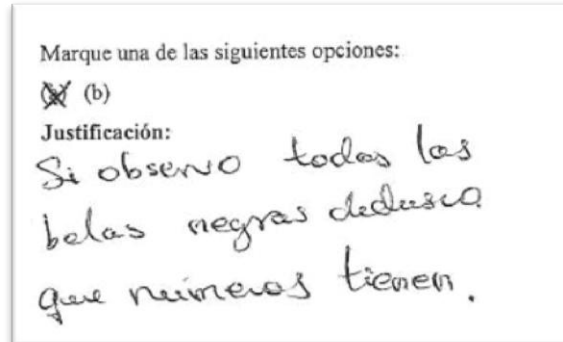 Marque una de las siguientes opciones:
(a) (b)
Justificación:
Si observo todas las
bolas negras dedusco
que números tienen.